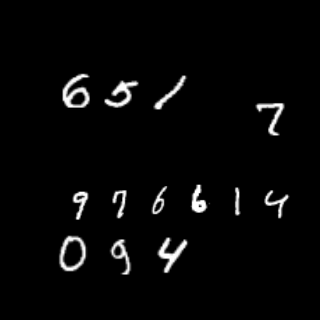 651
7
976614
094